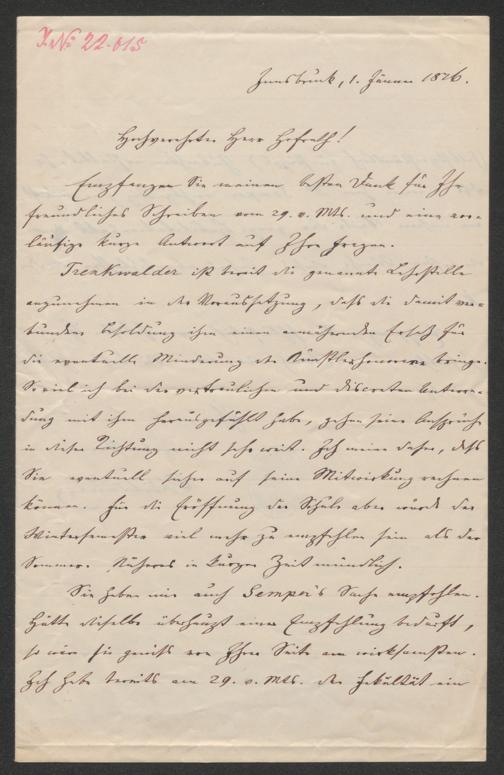 J. No 22.015
Innsbruck, 1. Jänner 1876.
Hochverehrter Herr Hofrath!
Empfangen Sie meinen besten Dank für Ihr
freundliches Schreiben vom 29. v. Mts. und eine vor=
läufige kurze Antwort auf Ihre Fragen.
Trenkwalder ist bereit die genannte Lehrstelle
anzunehmen in der Voraussetzung, daß die damit ver=
bundene Besoldung ihm einen annähernden Ersatz für
die eventuelle Minderung des Künstlerhonorars bringe.
Soviel ich bei der vertraulichen und discreten Unterre-
dung mit ihm herausgefühlt habe, gehen seine Ansprüche
in dieser Richtung nicht sehr weit. Ich meine daher, daß
Sie eventuell sicher auf seine Mitwirkung rechnen
können. Für die Eröffnung der Schule aber würde der
Wintersemester viel mehr zu empfehlen sein als der
Sommer. Näheres in kurzer Zeit mündlich.
Sie haben mir auch Semper's Sache empfohlen.
Hätte dieselbe überhaupt einer Empfehlung bedurft,
so wäre sie gewiß von Ihrer Seite am wirksamsten.
Ich habe bereits am 29. v. Mts. der Fakultät ein